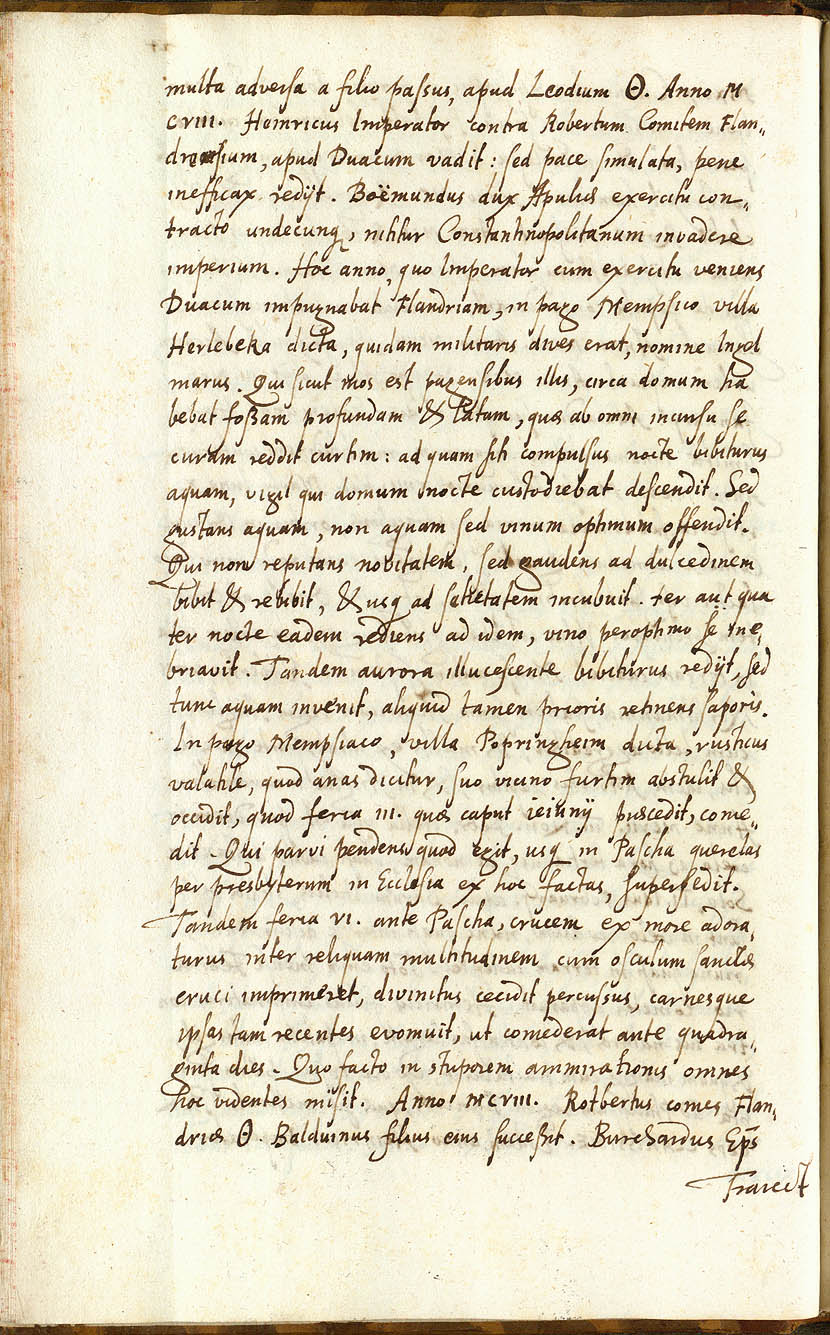 multa adversa a filio passus, apud Leodium Θ. Anno M
CVIII. Heinricus Imperator contra Robertum Comitem Flan„
drensium, apud Duacum vadit: sed pace simulata, pene
inefficax redijt. Boëmundus dux Apuliæ exercitu con„
tracto undecunq, nititur Constantinopolitanum invadere
imperium. Hoc anno, quo Imperator cum exercitu veniens
Duacum impugnabat Flandriam, in pago Mempsico villa
Herlebeka dicta, quidam militaris dives erat, nomine Ingel
marus. Qui sicut mos est pagensibus illis, circa domum ha
bebat foßam profundam & latam, quæ ab omni incursu se
curam reddit curtim: ad quam siti compulsus nocte bibiturus
aquam, vigil qui domum nocte custodiebat descendit. Sed
gustans aquam, non aquam sed vinum optimum offendit.
Qui non reputans novitatem, sed gaudens ad dulcedinem
bibit & rebibit, & usq ad satietatem incubuit. ter aut qua
ter nocte eadem rediens ad idem, vino peroptimo se ine„
briavit. Tandem aurora illucescente bibiturus redijt, sed
tunc aquam invenit, aliquid tamen prioris retinens saporis.
In pago Mempsiaco, villa Popringheim dicta, rusticus
valatile, quod anas dicitur, suo vicino furtim abstulit &
occidit, quod feria III. quæ caput ieiunij præcedit, come„
dit. Qui parvi pendens quod egit, usq in Pascha querelas
per presbyterum in Ecclesia ex hoc factas, supersedit.
Tandem feria VI. ante Pascha, crucem ex more adora„
turus inter reliquam multitudinem cum osculum sanctæ
cruci imprimeret, divinitus cecidit percussus, carnesque
ipsas tam recentes evomuit, ut comederat ante quadra„
ginta dies. Quo facto in stuporem ammirationis omnes
hoc videntes misit. Anno MCVIII. Rotbertus comes Flan„
driæ Θ. Balduinus filius eius succeßit. Burchardus Ep̄s
Traiect